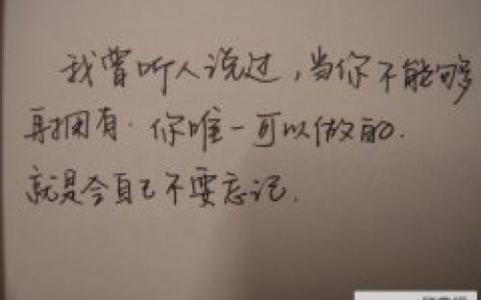 我曾听人说过，当你不能够
再拥有．你唯一可以做的．
就是令自己不要忘记．